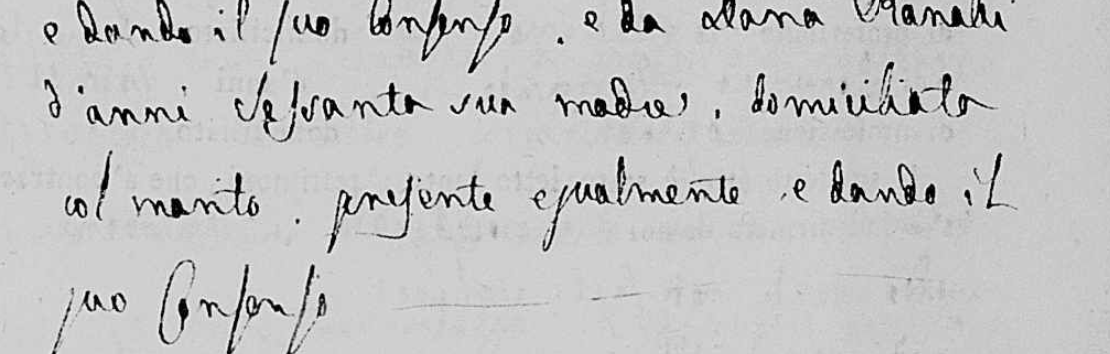 e dando il suo Consenso, e da
d'anni Sessanta sua madre, domiciliata
col marito, presente egualmente e dando il
suo Consenso